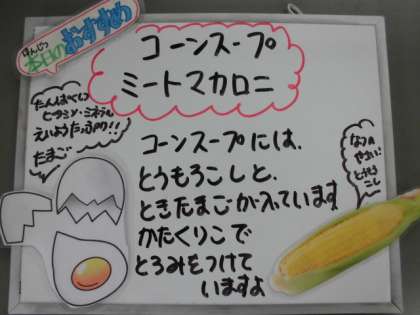 ほんじつ
本日のおすすめ
コーンスープ
ミートマカロニ
たんぱくしつ
ビタミン・ミネラル
えいようたっぷり!!
たまご
コーンスープには、
とうもろこしと、
ときたまごが入っています
かたくりこで
とろみをつけて
いますよ
なつの
やさい!
とうもろ
こし